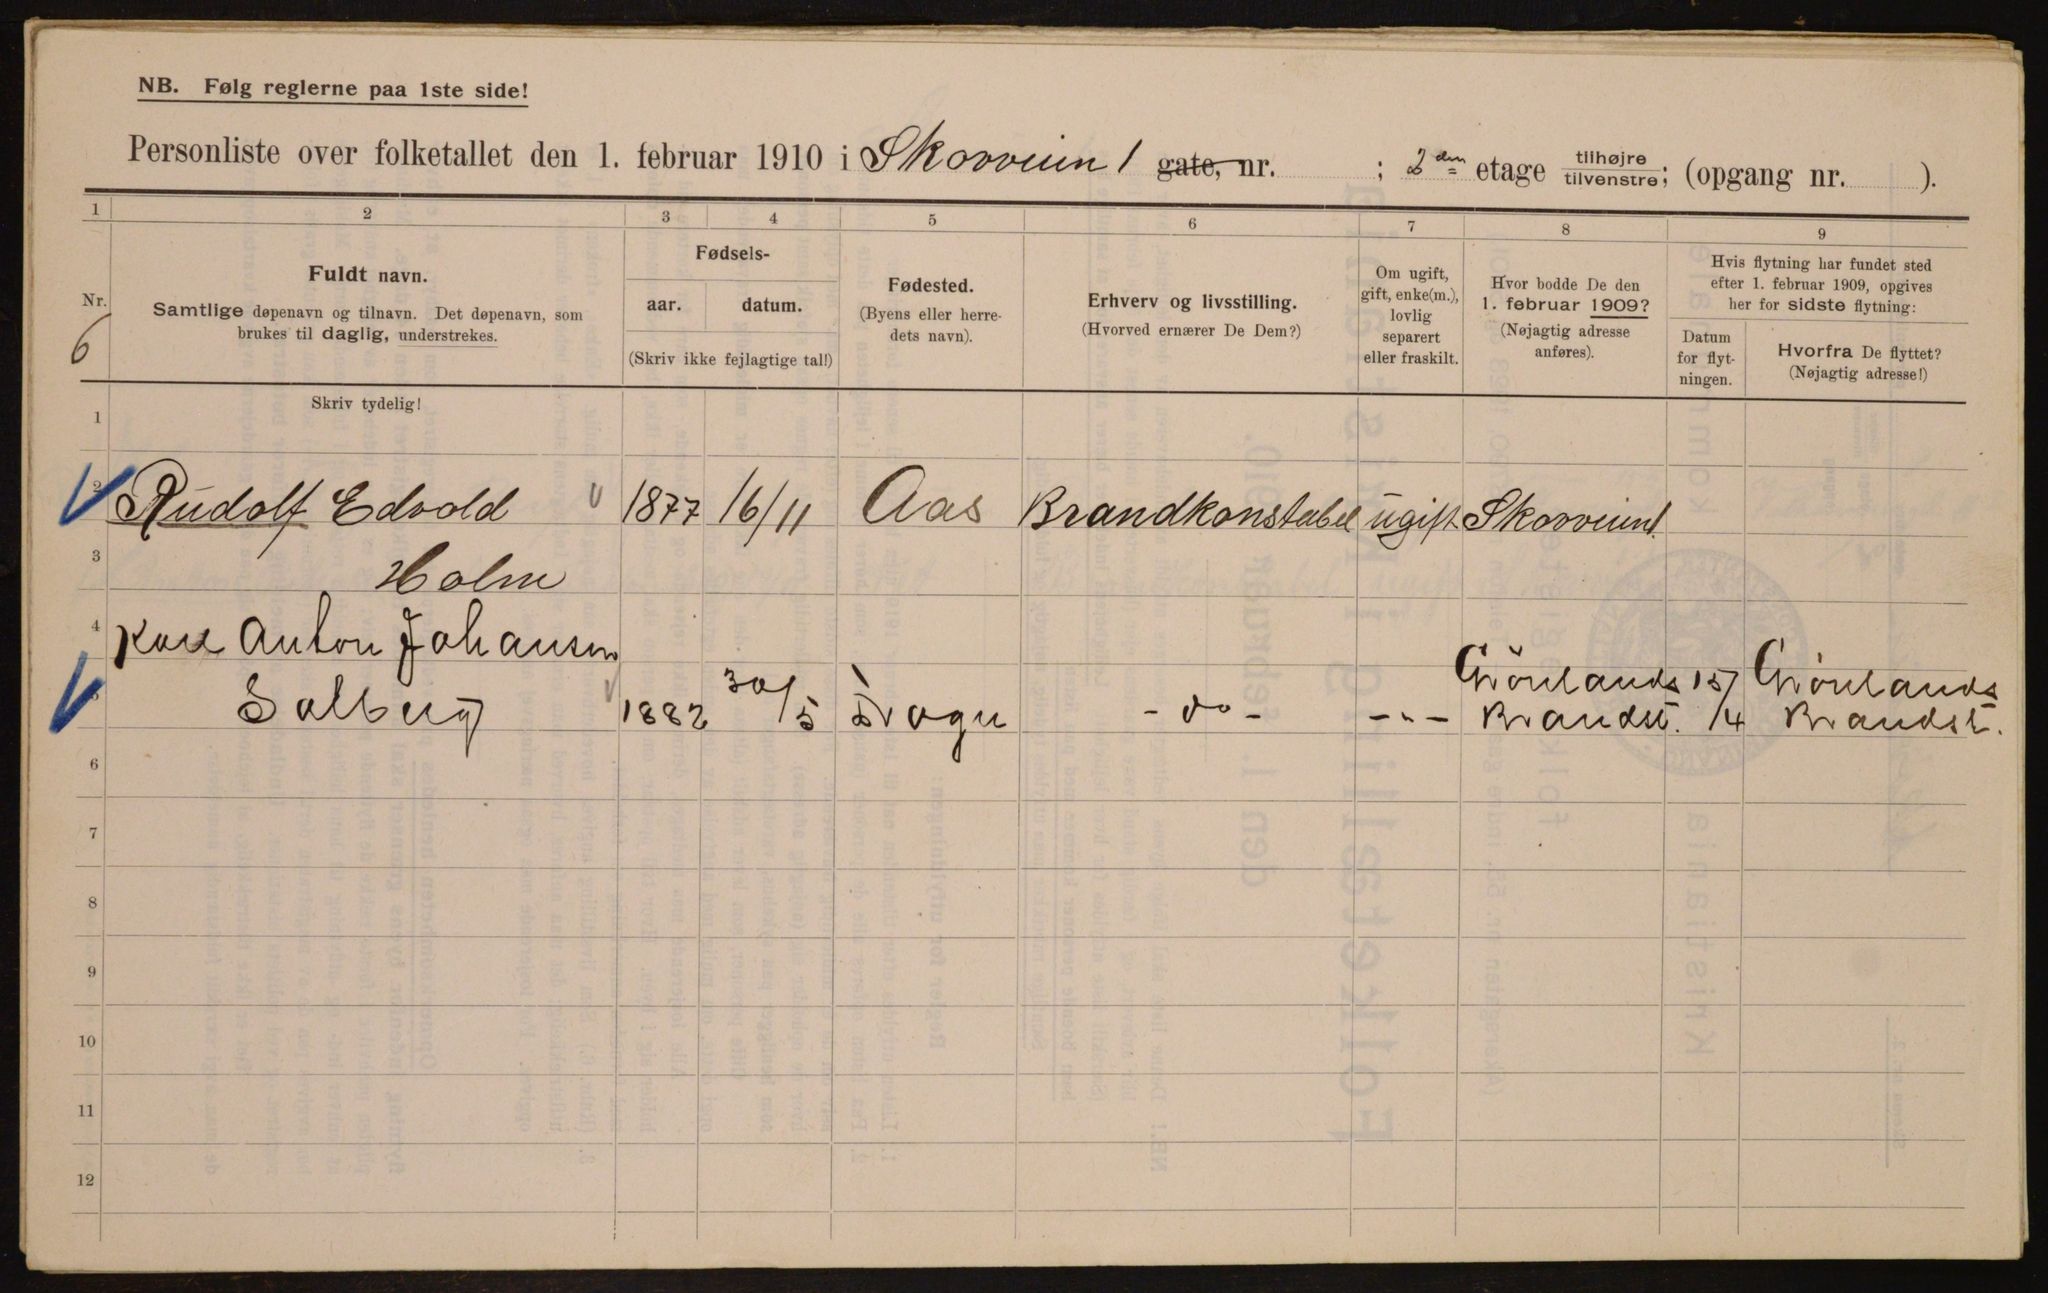 NB. Følg reglerne paa 1ste side!
Personliste over folketallet den 1. februar 1910 i Skovveien 1 gate, nr. ; 2den etage tilhøjre tilvenstre; (opgang nr. ).
1 2 3 4 5 6 7 8 9
Nr.
6
Fuldt navn.
Samtlige døpenavn og tilnavn. Det døpenavn, som
brukes til daglig, understrekes.
Fødsels-
aar. datum.
(Skriv ikke fejlagtige tal!)
Fødested.
(Byens eller herre-
dets navn).
Erhverv og livsstilling.
(Hvorved ernærer De Dem?)
Om ugift,
gift, enke(m.),
lovlig
separert
eller fraskilt.
Hvor bodde De den
1. februar 1909?
(Nøjagtig adresse
anføres).
Hvis flytning har fundet sted
efter 1. februar 1909, opgives
her for sidste flytning:
Datum
for flyt-
ningen.
Hvorfra De flyttet?
(Nøjagtig adresse!)
Skriv tydelig!
1
2 Rudolf Edvold 1877 16/11 Aas Brandkonstabel ugift Skovveien 1.
3 Holm
4 Karl Anton Johansen
5 Solberg 1882 30/5 Drøgn - do - - " - Grönlands Brandst. 15/4 Grönlands Brandst.
6
7
8
9
10
11
12